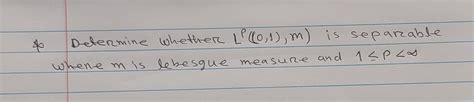 * Determine whether Lᵖ((0,1), m) is separable
where m is lebesgue measure and 1 ≤ p < ∞